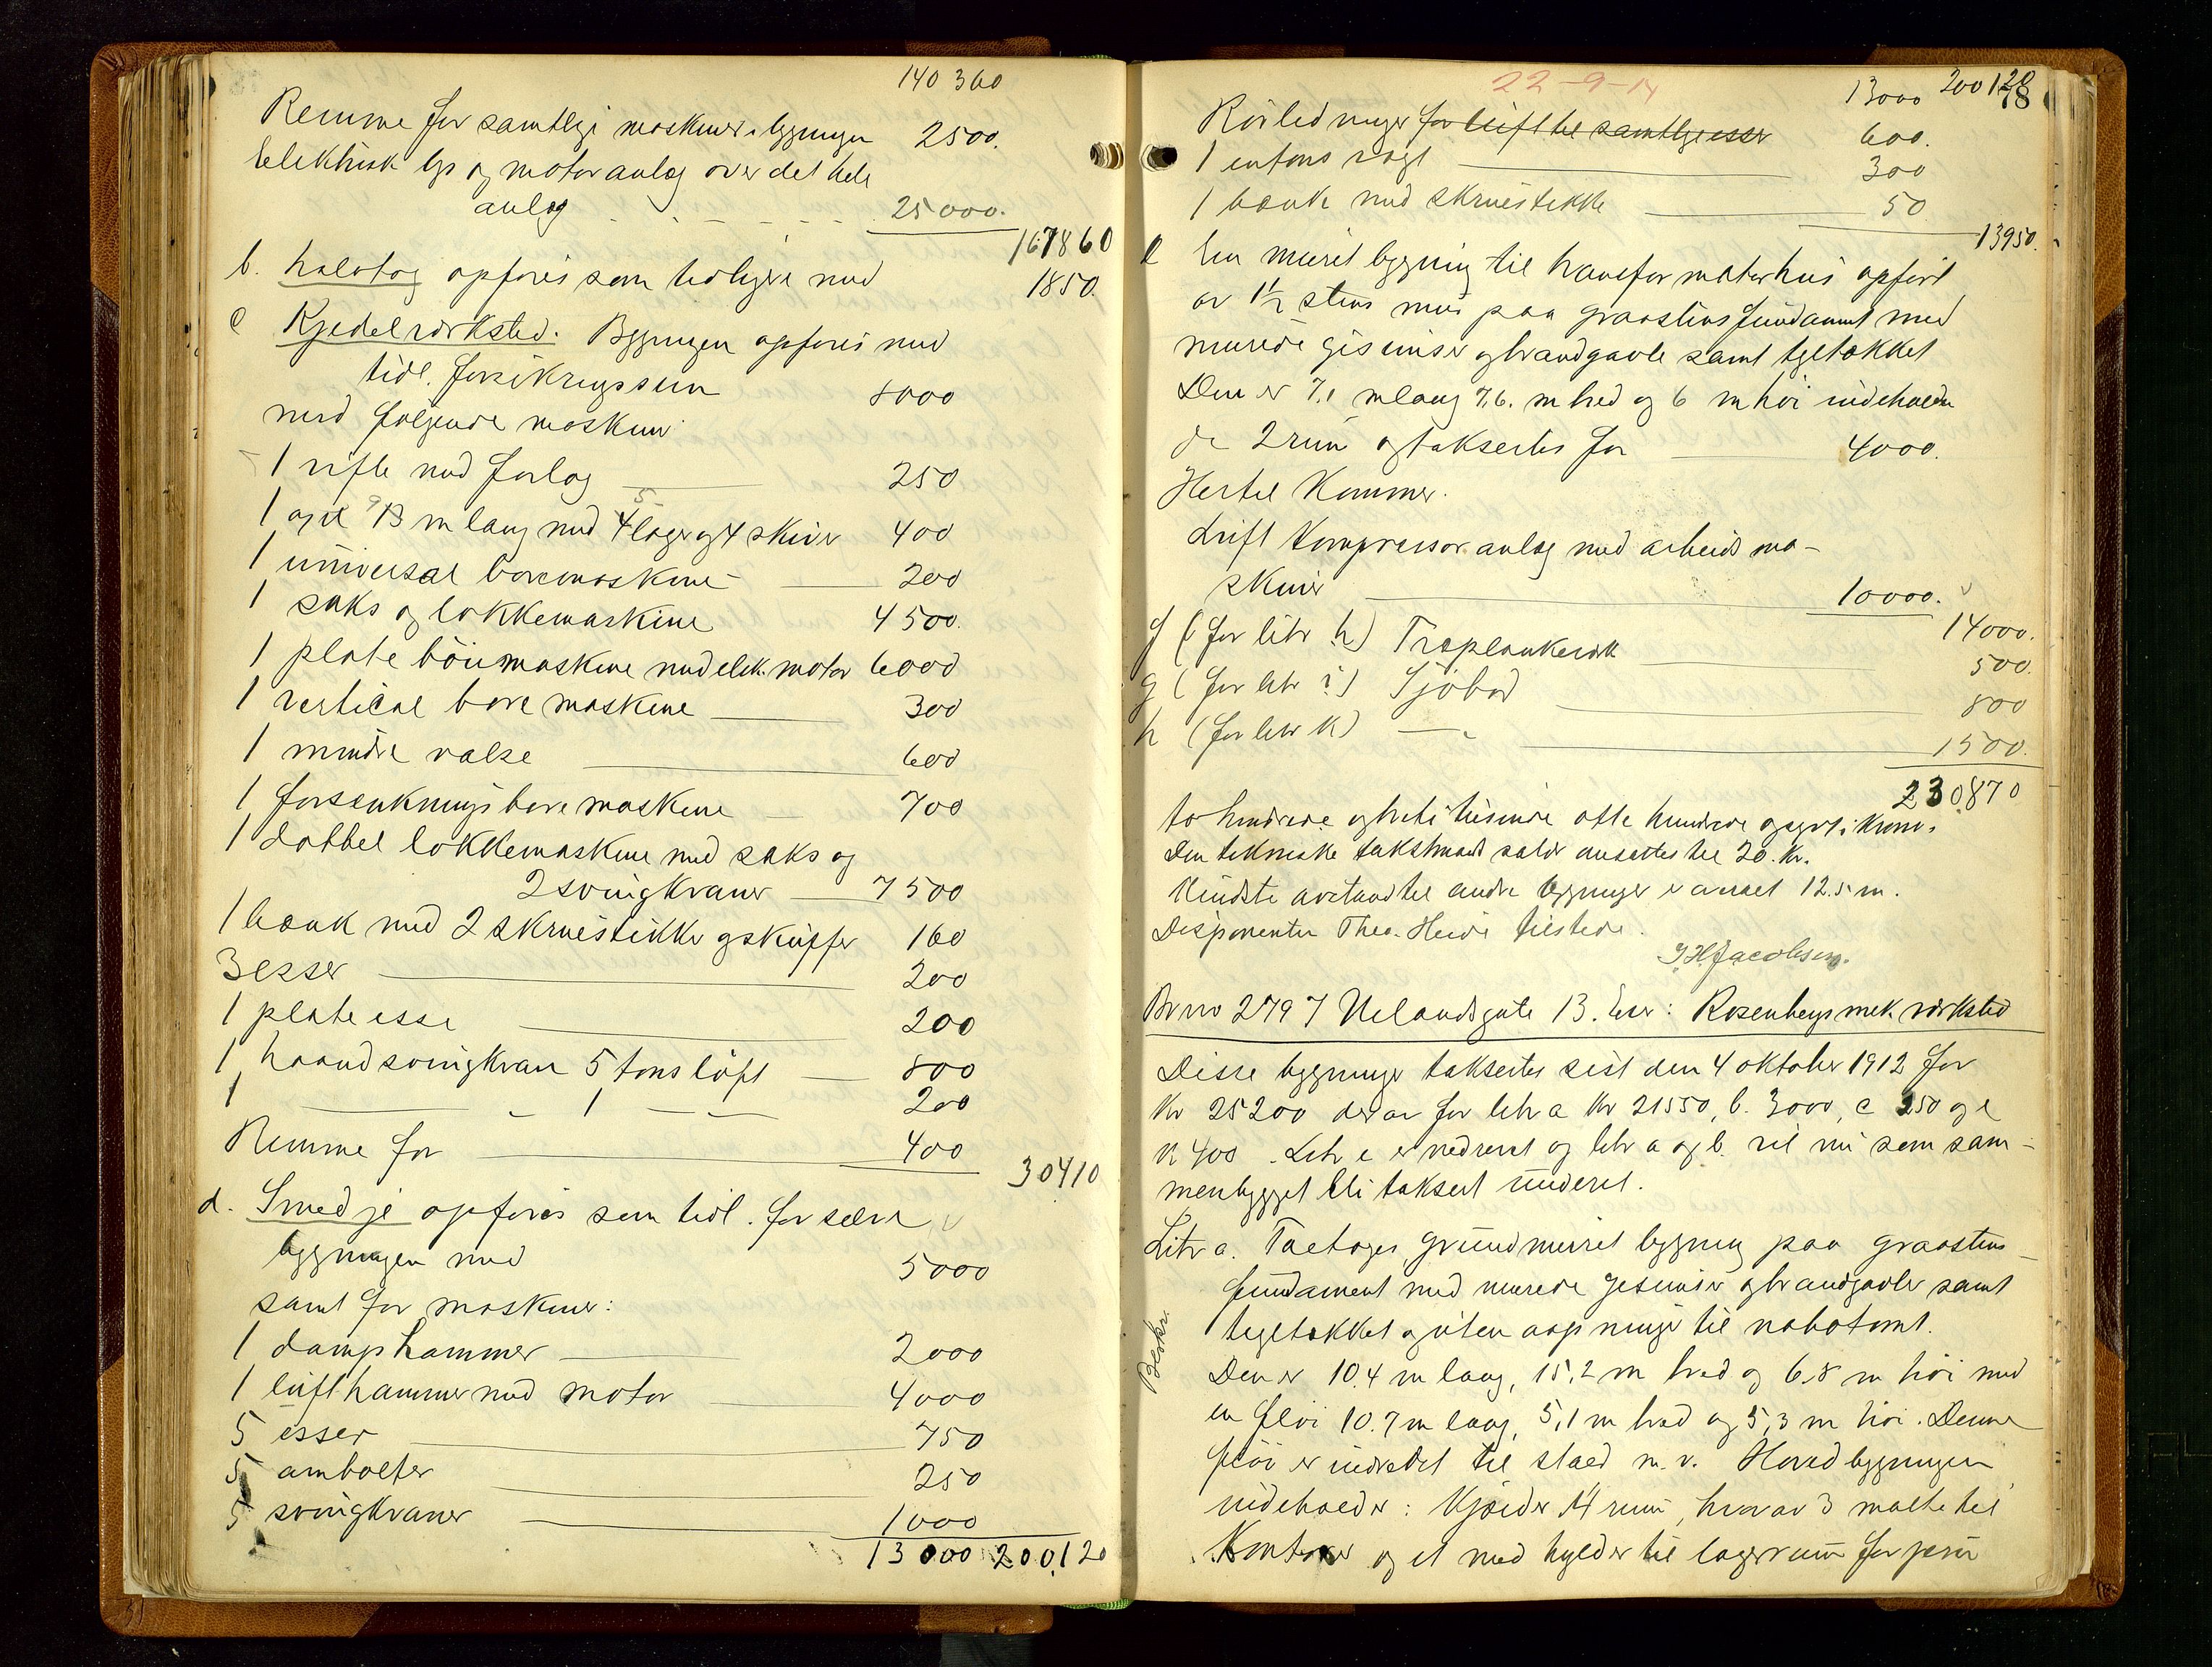 140 360
Remme for samtlige maskiner i bygningen 2500.
Elektrisk lys og motoranlæg over det hele
anlæg 25000.
167860
b. Halvtag opføres som tidligere med 1850.
c Kjedelverksted. Bygningen opføres med
tidl. forsikringssum 8000
med følgende maskiner
1 vifte med forlag 250
1 axel 9 13 m lang med 5 4 lager og 4 skiver 400
1 universal boremaskine 200
1 saks og lokkemaskine 4500.
1 plate bøiemaskine med elek. motor 6000
1 vertical bore maskine 300
1 mindre valse 600
1 forsænknings bore maskine 700
1 dobbel lokkemaskine med saks og
2 svingkraner 7500
1 bænk med 2 skruestikker og skuffer 160
3 esser 200
1 plateesse 200
1 haandsvingkran 5 tons løft 800
1 — " — 1 — " — 200
Remme for 400
30410
d. Smedje opføres som tidl. for selve
bygningen med 5000
samt for maskiner:
1 damphammer 2000
1 lufthammer med motor 4000
5 esser 750
5 ambolter 250
5 svingkraner 1000
13000 200,120
22-9-14
13000 200120
78
Rørledninger for luft til samtlige esser 600.
1 entons vægt 300
1 bænk med skruestikke 50
13950.
e En muret bygning til transformatorhus opført
av 1½ stens mur paa graastensfundament med
murede gesimser og brandgavle samt tegltækket
Den er 7.1 m lang 7,6. m bred og 6 m høi indeholden
de 2 rum og taksertes for 4000.
Hertil kommer.
Luft kompressor anlæg med arbeids ma-
skiner 10000.
14000.
f (for litr h) Træplankeverk 500.
g (for litr i) Sjøbod 800
h (for litr k) — " 1500.
230870
to hundrede og treti tusinde otte hundrede og sytti kroner.
Den tekniske takstmands salær ansattes til 20. kr.
Mindste avstand til andre bygninger er anslaat 12.5 m.
Disponenten Theo. Heide tilstede.
J.H. Jacobsen.
Br no 2797 Nelandsgate 13. Eier: Rosenbergs mek. verksted
Disse bygninger taksertes sist den 4 oktober 1912 for
Kr 25200 derav for litr a Kr 21550, b. 3000, c 250 og e
Kr 400. Litr e er nedrevet og litr a og b. vil nu som sam-
menbygget bli taksert underet.
Litr a. Toetages, grundmuret bygning paa graastens
fundament med murede gesimser og brandgavler samt
tegltækket og uten aapninger til nabotomt.
Beskr.
Den er 10.4 m lang, 15,2 m bred og 6,8 m høi med
en fløi 10.7 m lang, 5,1 m bred og 5,3 m høi. Denne
fløi er indredet til stald m. v. Hovedbygningen
indeholder: Kjælder 4 rum, hvorav 3 malte til
Kontorer og et med hylder til lagerrum for